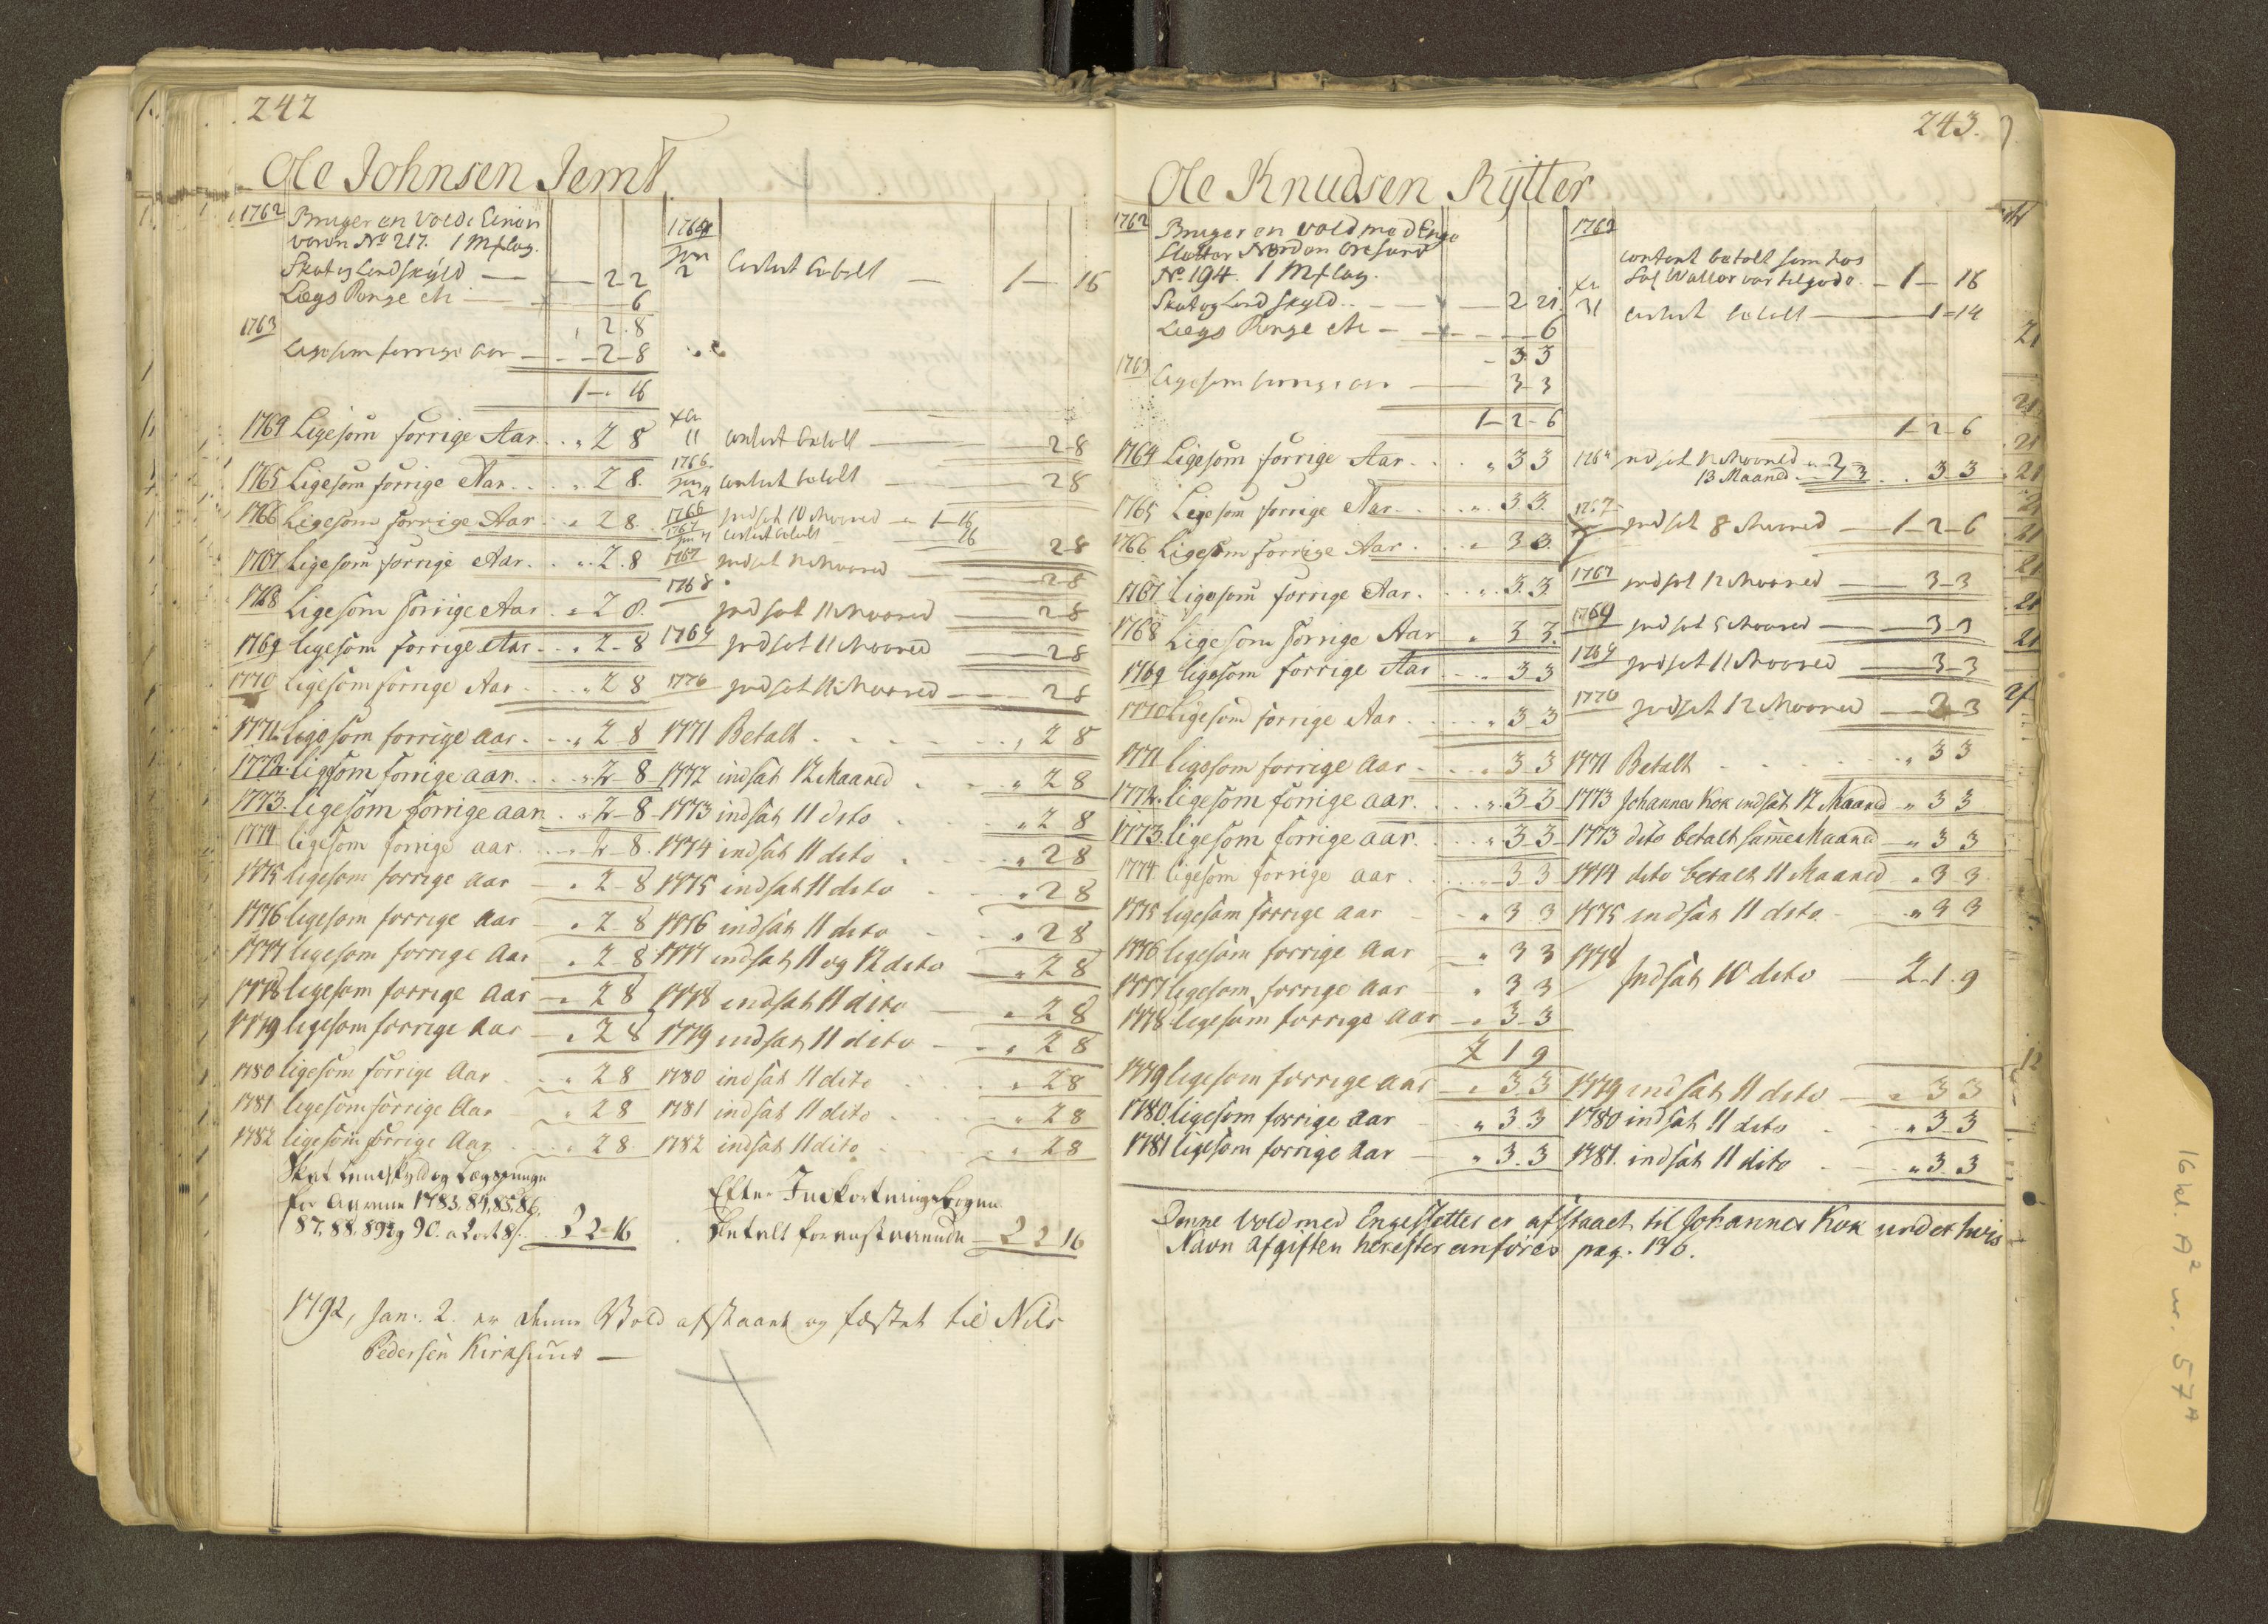 242
Ole Johnsen Jemt
1762 Bruger en Vold
No 217. 1 Mæslag.
Skat og Landskyld — 2 2
Lægs Penge — 6
2. 8
1763
Ligesom forrige Aar — 2-8
1-. 16
1764 Ligesom forrige Aar . . „ 2 8
1765 Ligesom forrige Aar . . . „ 2 8.
1766 Ligesom forrige Aar . . „ 2 8.
1767 Ligesom forrige Aar . . „ 2. 8
1768 Ligesom forrige Aar . „ 2 8.
1769 ligesom forrige Aar - . . 2-8
1770 ligesom forrige Aar . . . „ 2 8
1771. ligesom forrige aar . - . „ 2-8
1772. ligesom forrige aar . . . „ 2-8
1773. ligesom forrige aar . „ 2-8
1774 ligesom forrige aar . . „ 2-8.
1775 ligesom forrige aar — „ 2-8
1776 ligesom forrige aar — „ 2-8
1777 ligesom forrige Aar „ 2-8
1778 ligesom forrige aar — „ 2 8
1779 ligesom forrige Aar „ 2 8
1780 ligesom forrige Aar . . „ 2 8
1781 ligesom forrige Aar „ 2 8
1782 ligesom forrige Aar . . „ 2 8.
Skat Landskyld og Lægspenge
for Aarene 1783, 84, 85, 86,
87, 88, 89 og 90. a 2 ort 8 s. . . 2 2-16
1764
Jan
2 Contant betalt — 1- 16
11 contant betalt — 2-8
1766
Jan 24 contant betalt — 2 8
1766 Indsat 10 Maaned — 1-16
1767
contant betalt 16
2-8
1767 Indsat 12 Maaned — 2-8
1768
Indsat 11 Maaned — 2 8
1769 Indsat 11 Maaned — 2 8
1770 Indsat 11 Maaned — 2 8
1771 Betalt . . . . . , 2 8
1772 indsat 12 Maaned . . „ 2 8
1773 indsat 11 dito . . „ 2 8
1774 indsat 11 dito . . „ 2 8
1775 indsat 11 dito . . „ 2 8
1776 indsat 11 dito . . „ 2 8
1777 indsat 11 og 12 dito — „ 2 8
1778 indsat 11 dito — „ 2 8
1779 indsat 11 dito — „ 2 8
1780 indsat 11 dito . . „ 2 8
1781 indsat 11 dito . . „ 2 8
1782 indsat 11 dito . . „ 2 8
Efter Inkorteringsbogen
betalt for — 2 2 16
1792, Jan: 2. er denne Vold afstaaet og fæstet til Nils
Pedersen Kirksund —
243.
Ole Knudsen Rytter
1762
Bruger en Vold med Enge
Sletter Norden Øresund
No. 194. 1 Mæslag.
Skat og Landskyld . . — 2 21.
Lægs Penge — 6
- 3. 3
1763
Ligesom forrige Aar — 3-3
1-2-6
1764 Ligesom forrige Aar . . . „ 3 3
1765 Ligesom forrige Aar . . . „ 3 3.
1766 Ligesom forrige Aar . . „ 3 3.
1767 Ligesom forrige Aar . . „ 3. 3
1768 Ligesom forrige Aar „ 3 3.
1769 ligesom forrige Aar . . „ 3 3
1770 Ligesom forrige Aar . . . „ 3 3
1771 ligesom forrige aar . . . „ 3 3
1772. ligesom forrige aar. . . . „ 3 3
1773. ligesom forrige aar. . . „ 3 3
1774 ligesom forrige aar . . . „ 3 3
1775 ligesom forrige aar — „ 3 3
1776 ligesom forrige aar „ 3 3
1777 ligesom forrige aar „ 3 3
1778 ligesom forrige aar — „ 3 3
2 1 9
1779 ligesom forrige aar — „ 3 3
1780. ligesom forrige aar „ 3 3
1781 ligesom forrige Aar — „ 3. 3
1762
contant betalt som hos
var tilgode — 1- 16
31 contant betalt — 1-14
1-2-6
1764 Indsat 12 Maaned
13 Maaned . . 3-3
1767
Indsat 8 Maaned — 1-2-6
1767 Indsat 12 Maaned — 3-3
Maaned — 3-3
1769 Indsat 11 Maaned — 3-3
1770 Indsat 12 Maaned — 3-3
1771 Betalt . . . . „ 3 3
1773 Johannes Kok indsat 12 Maaned „ 3 3
1773 dito betalt samme Maaned „ 3 3
1774 dito betalt 11 Maaned „ 3 3
1775 indsat 11 dito - „ 3 3
1778
Indsat 10 dito — 2. 1. 9
1779 indsat 11 dito — „ 3 3
1780 indsat 11 dito . „ 3-3
1781. indsat 11 dito . „ 3 3
Denne Vold med Engesletter er afstaaet til Johannes Kok under hvis
Navn Afgiften herefter anføres pag. 136.
16 kl. A² nr. 57ᴬ